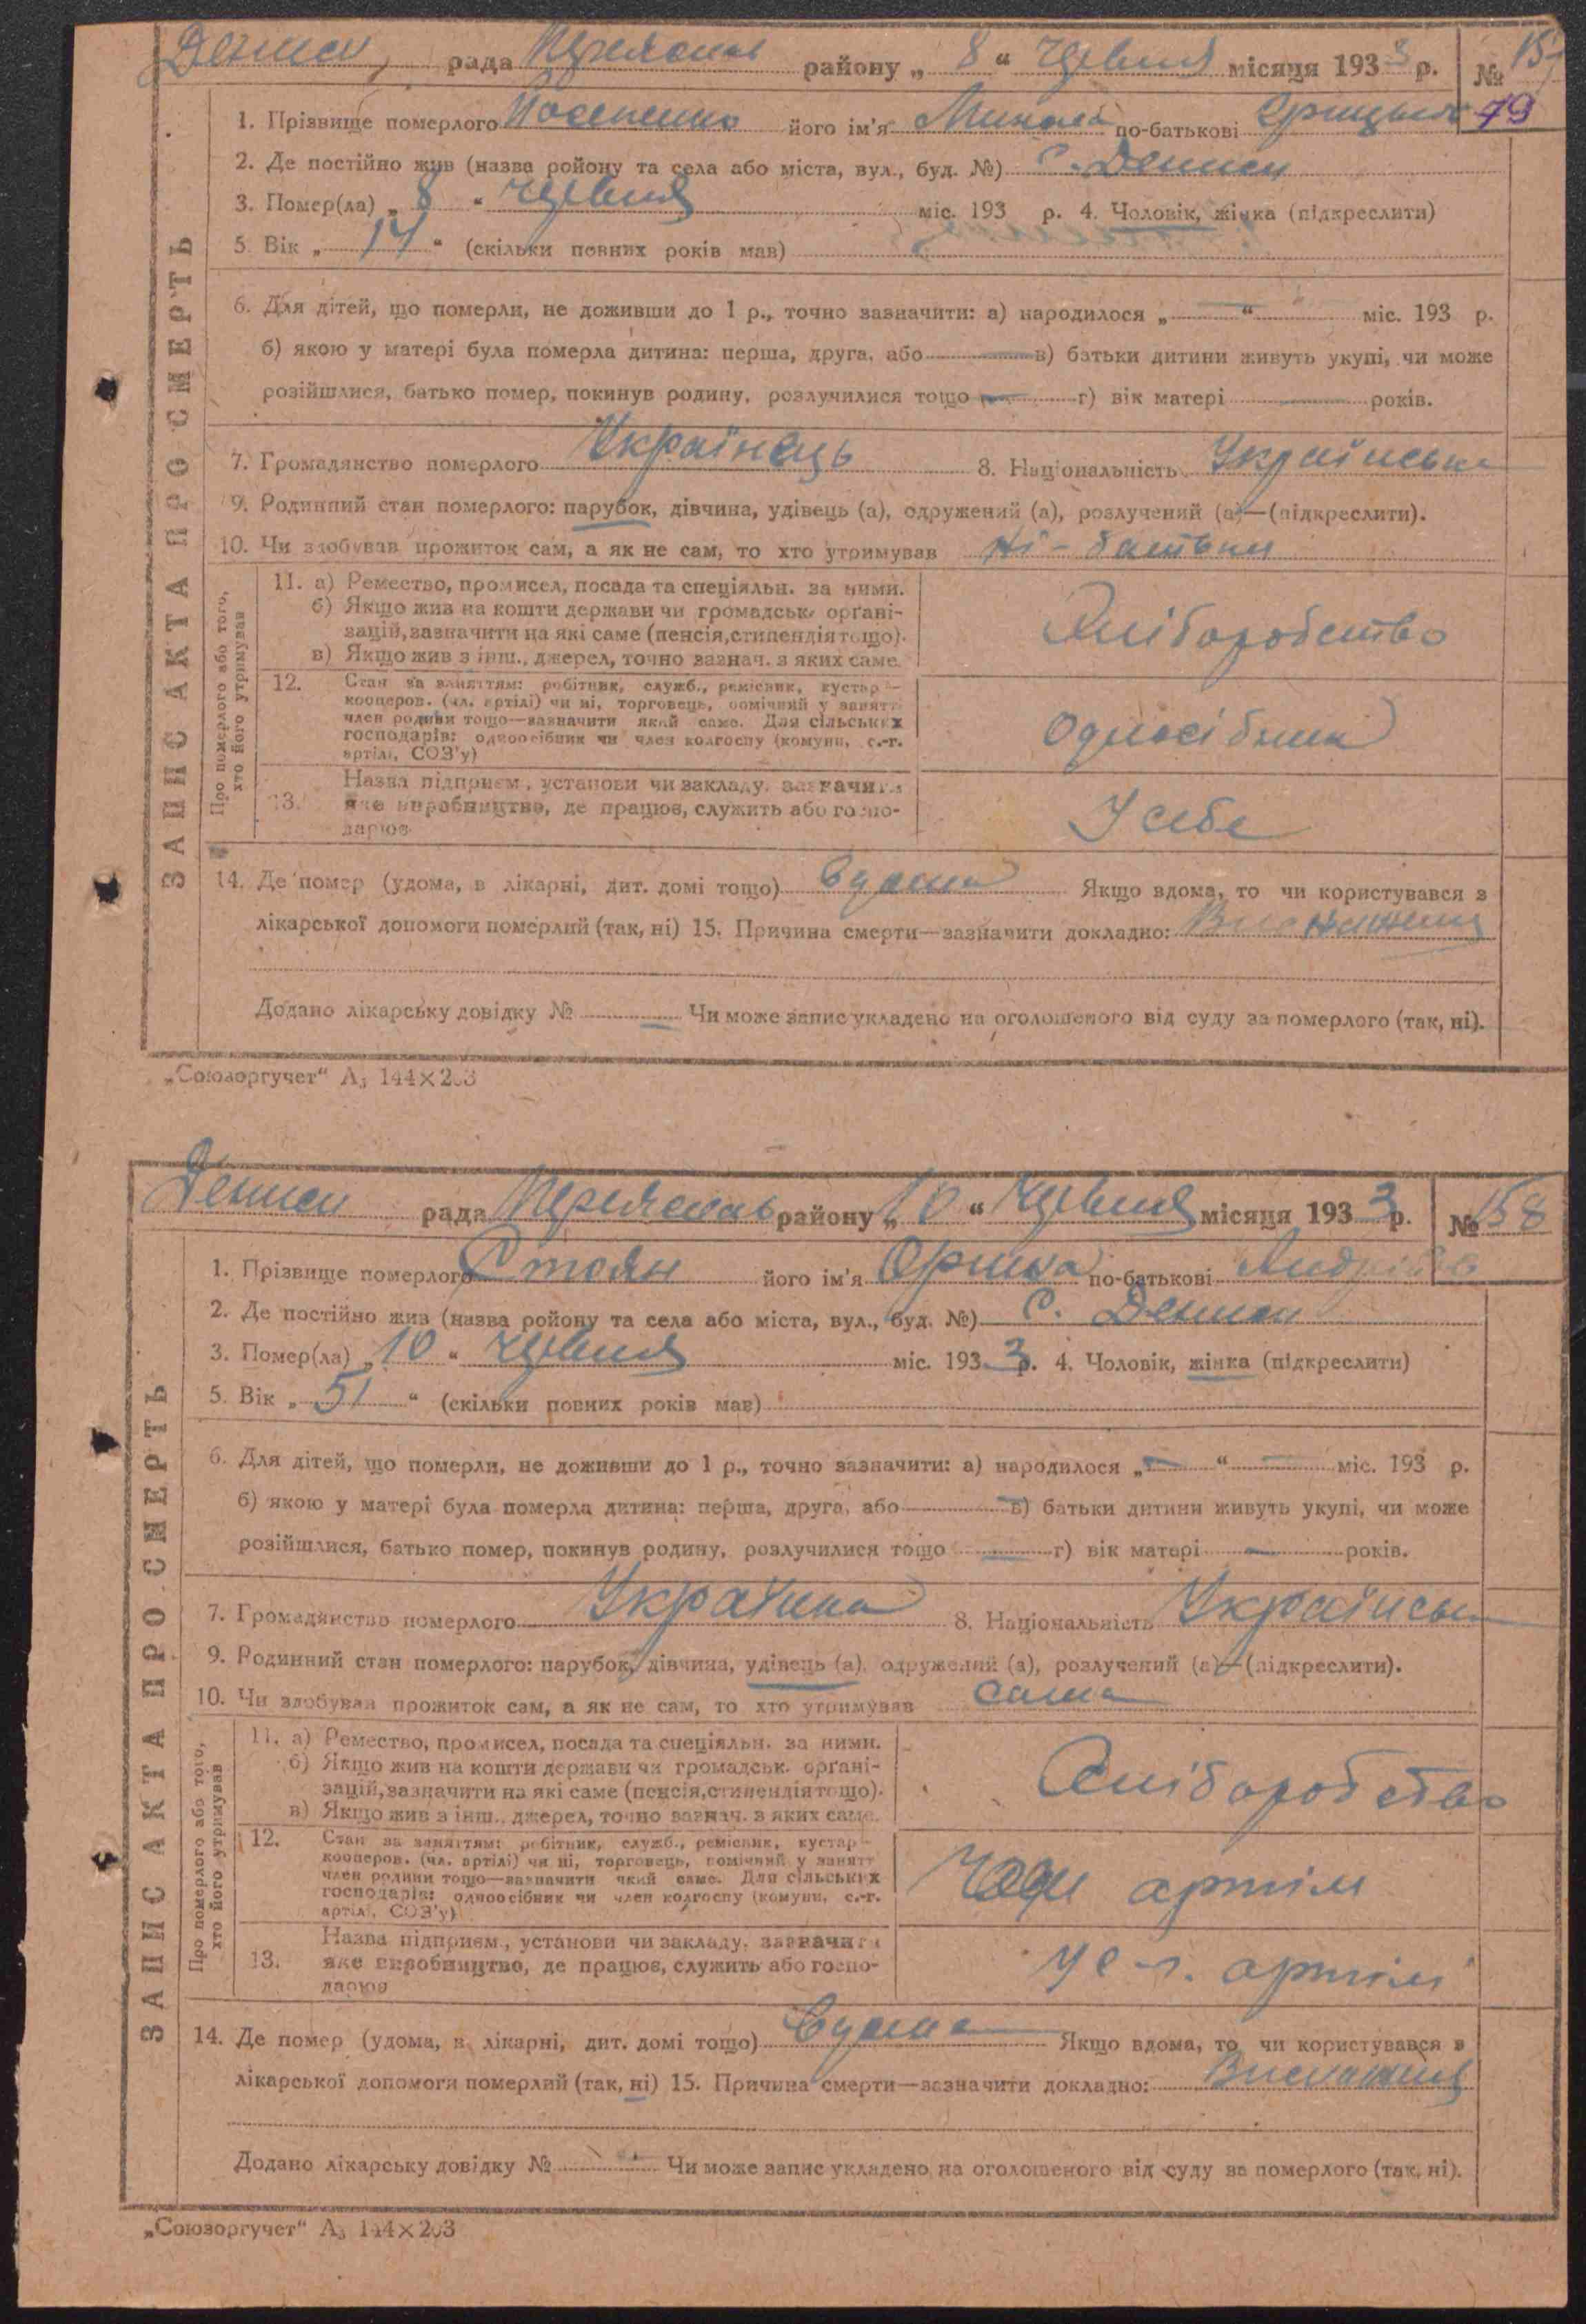 Дениси, рада Переяслав району „ 8 “ червня місяця 1933 р. № 15
79
1. Прізвище померлого його ім'я Микола по-батькові
2. Де постійно жив (назва ройону та села або міста, вул., буд. №) с. Дениси
3. Помер(ла) „ 8 “ червня міс. 193 р. 4. Чоловік, жінка (підкреслити)
5. Вік „ 14 “ (скільки повних років мав)
6. Для дітей, що померли, не доживши до 1 р., точно зазначити: а) народилося „ — “ — міс. 193 р.
б) якою у матері була померла дитина: перша, друга, або — в) батьки дитини живуть укупі, чи може
розійшлися, батько помер, покинув родину, розлучилися тощо — г) вік матері — років.
7. Громадянство померлого Українець 8. Національність Українська
9. Родинний стан померлого: парубок, дівчина, удівець (а), одружений (а), розлучений (а)—(підкреслити).
10. Чи здобував прожиток сам, а як не сам, то хто утримував Ні - батьки
ЗАПИС АКТА ПРО СМЕРТЬ
Про померлого або того,
хто його утримував
11. а) Ремество, промисел, посада та спеціяльн. за ними.
б) Якщо жив на кошти держави чи громадськ. орґані-
зацій, зазначити на які саме (пенсія, стипендія тощо).
в) Якщо жив з інш., джерел, точно зазнач. з яких саме.
Хліборобство
12. Стан за заняттям: робітник, служб., ремісник, кустар—
кооперов. (чл. артілі) чи ні, торговець, помічний у занятт
член родини тощо—зазначити який саме. Для сільських
господарів: одноосібник чи член колгоспу (комуни, с.-г.
артілі, СОЗ'у)
Односібник
13. Назва підприєм., установи чи закладу, зазначити
яке виробництво, де працює, служить або госпо-
дарює
У себе
14. Де помер (удома, в лікарні, дит. домі тощо) вдома Якщо вдома, то чи користувався з
лікарської допомоги померлий (так, ні) 15. Причина смерти—зазначити докладно: Виснаження
Додано лікарську довідку № — Чи може запис укладено на оголошеного від суду за померлого (так, ні).
„Союзоргучет“ А₃ 144×203
Дениси рада Переяслав району „ 10 “ червня місяця 1933 р. № 158
1. Прізвище померлого Стоян його ім'я Оришка по-батькові
2. Де постійно жив (назва ройону та села або міста, вул., буд. №) с. Дениси
3. Помер(ла) „ 10 “ червня міс. 1933 р. 4. Чоловік, жінка (підкреслити)
5. Вік „ 51 “ (скільки повних років мав)
6. Для дітей, що померли, не доживши до 1 р., точно зазначити: а) народилося „ — “ — міс. 193 р.
б) якою у матері була померла дитина: перша, друга, або — в) батьки дитини живуть укупі, чи може
розійшлися, батько помер, покинув родину, розлучилися тощо — г) вік матері — років.
7. Громадянство померлого Українка 8. Національність Українськ
9. Родинний стан померлого: парубок, дівчина, удівець (а), одружений (а), розлучений (а)—(підкреслити).
10. Чи здобував прожиток сам, а як не сам, то хто утримував сама
ЗАПИС АКТА ПРО СМЕРТЬ
Про померлого або того,
хто його утримував
11. а) Ремество, промисел, посада та спеціяльн. за ними.
б) Якщо жив на кошти держави чи громадськ. орґані-
зацій, зазначити на які саме (пенсія, стипендія тощо).
в) Якщо жив з інш., джерел, точно зазнач. з яких саме.
Хліборобство
12. Стан за заняттям: робітник, служб., ремісник, кустар—
кооперов. (чл. артілі) чи ні, торговець, помічний у занятт
член родини тощо—зазначити який саме. Для сільських
господарів: одноосібник чи член колгоспу (комуни, с.-г.
артілі, СОЗ'у)
артіли
13. Назва підприєм., установи чи закладу, зазначити
яке виробництво, де працює, служить або госпо-
дарює
У с-г. артілі
14. Де помер (удома, в лікарні, дит. домі тощо) вдома Якщо вдома, то чи користувався з
лікарської допомоги померлий (так, ні) 15. Причина смерти—зазначити докладно: Виснаження
Додано лікарську довідку № Чи може запис укладено на оголошеного від суду за померлого (так, ні).
„Союзоргучет“ А₃ 144×203